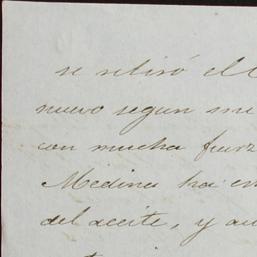 se retiró el
nuevo segun me
con mucha fuerz
Medina ha en
del aceite, y au